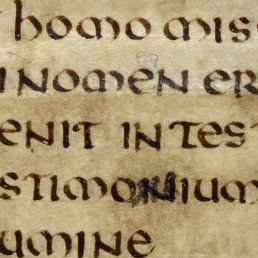 homo mis
nomen er
enit in tes
stimonium
umine